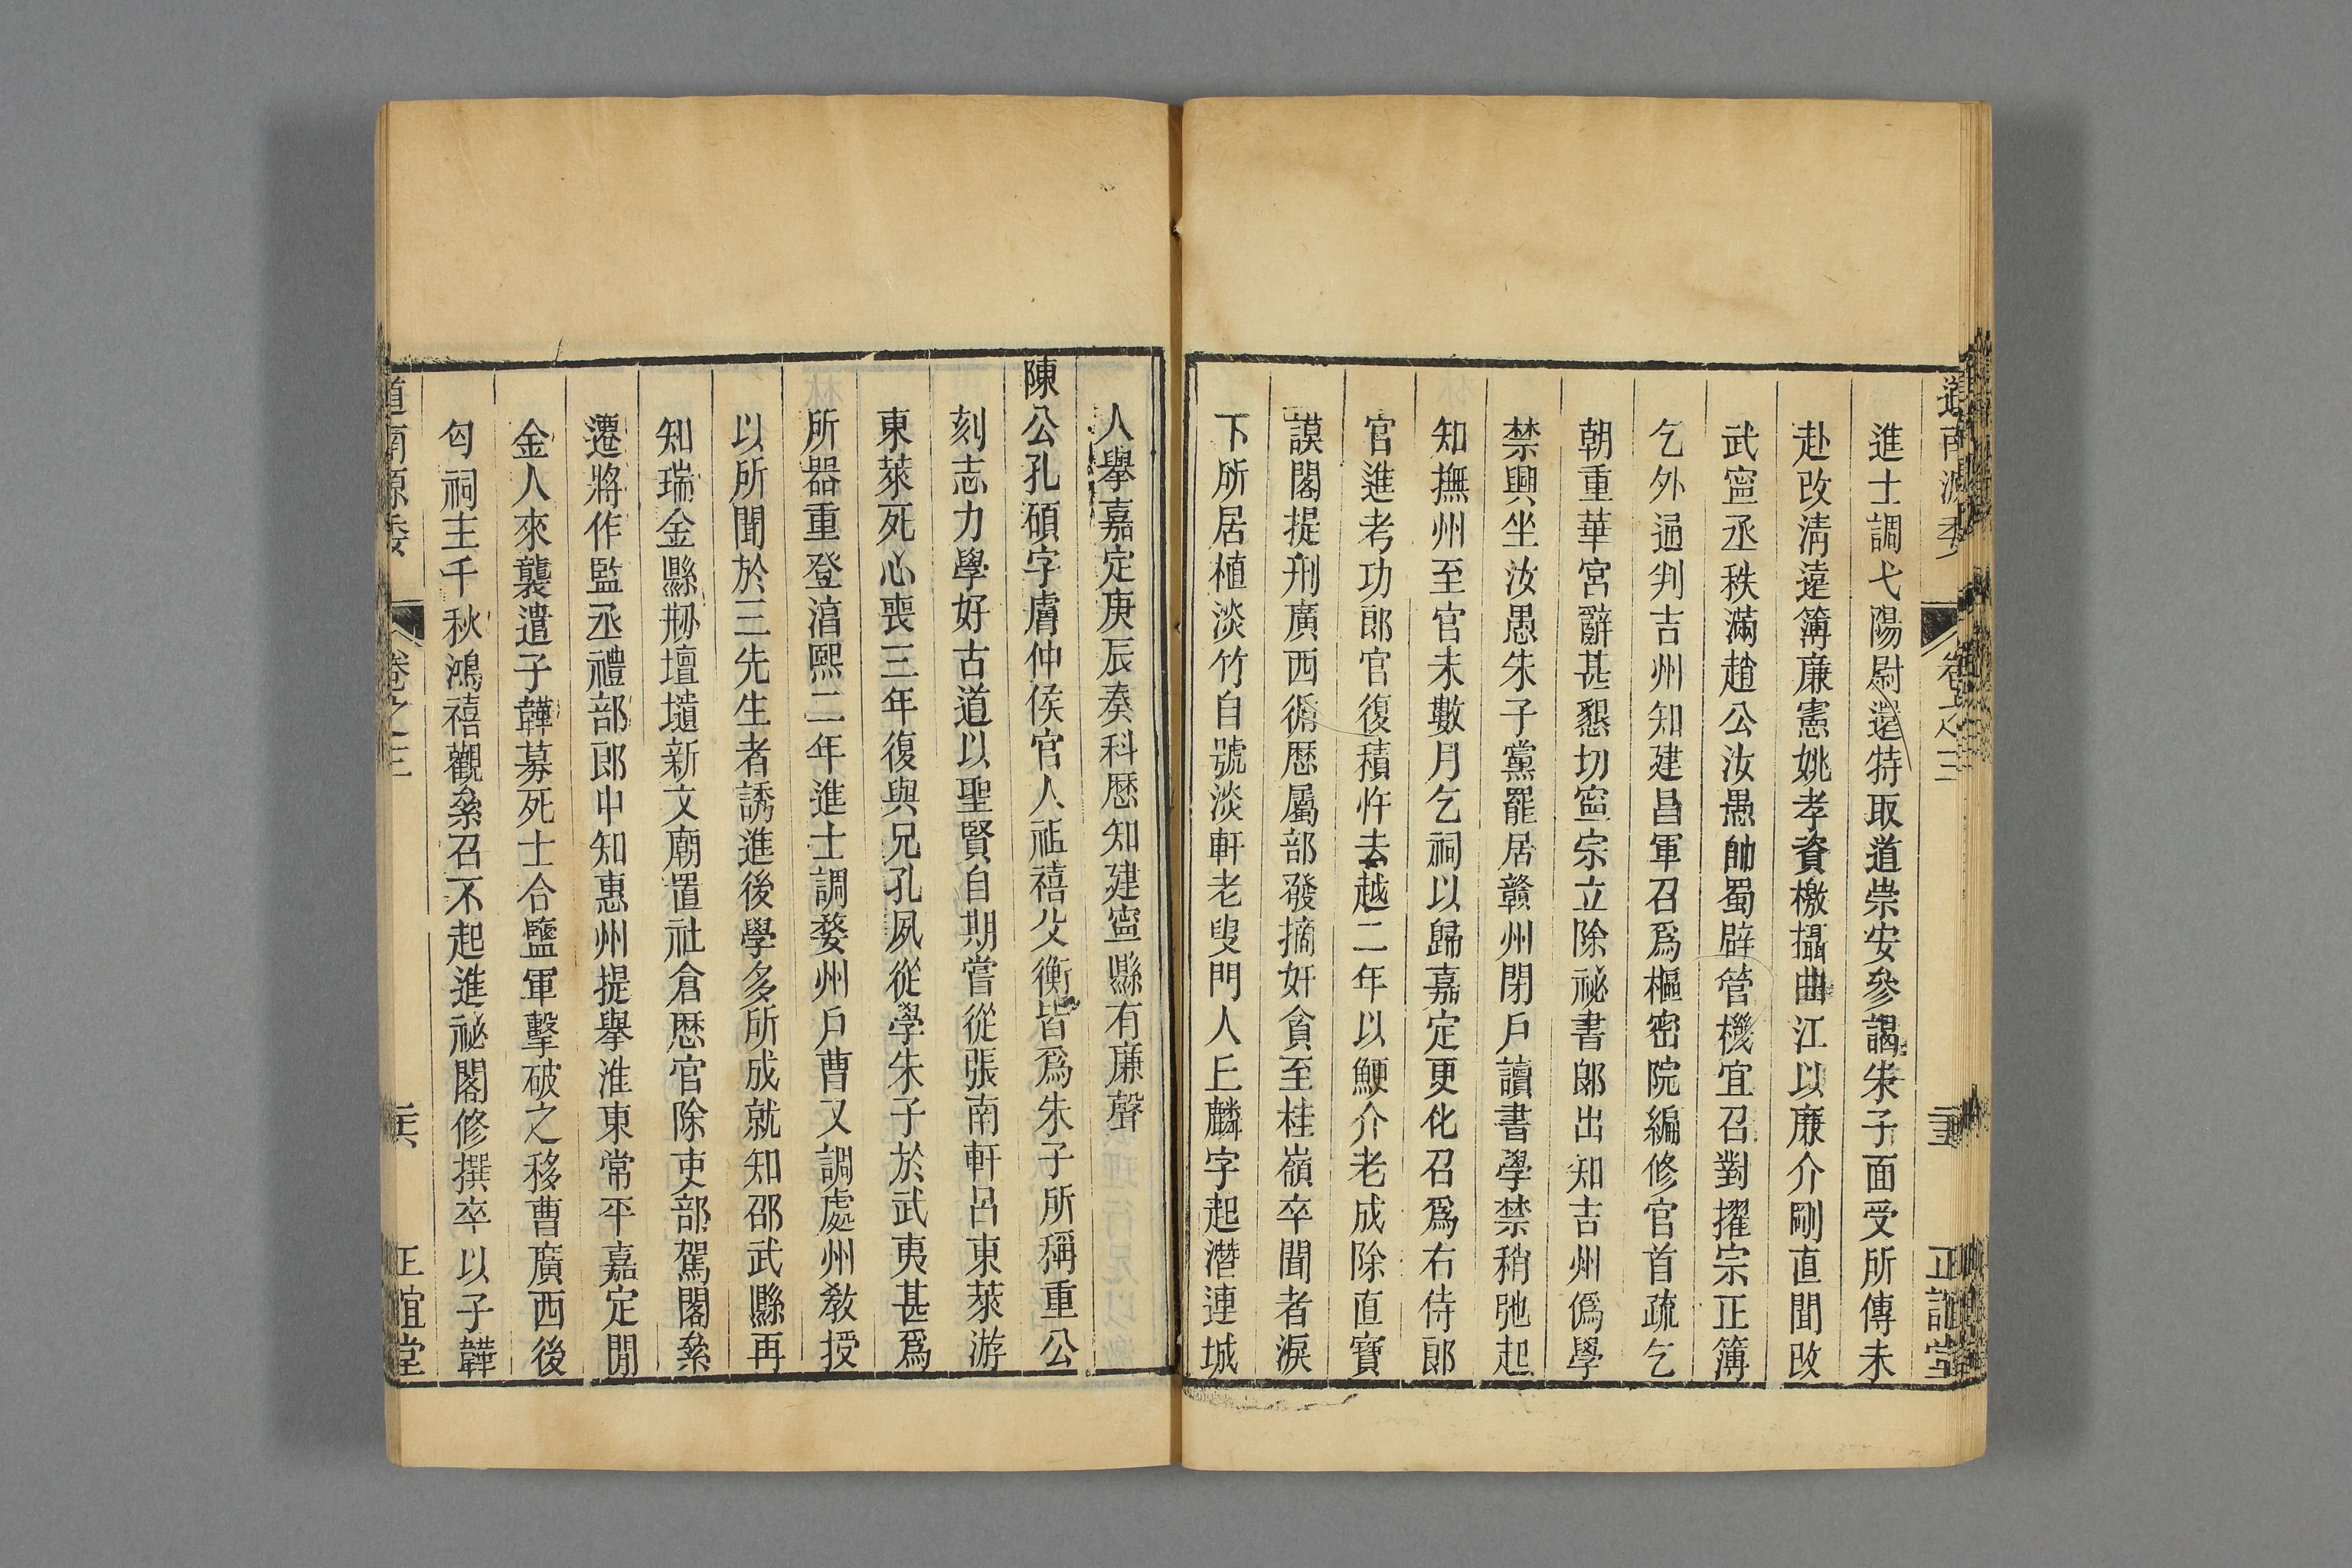 道南源委 卷之三 正誼堂
進士調弋陽尉還特取道崇安參謁朱子面受所傳未
赴改清遠簿廉憲姚孝資檄攝曲江以廉介剛直聞改
武寧丞秩滿趙公汝愚帥蜀辟管機宜召對擢宗正簿
乞外通判吉州知建昌軍召爲樞密院編修官首疏乞
朝重華宮辭甚懇切寧宗立除祕書郎出知吉州僞學
禁興坐汝愚朱子黨罷居贛州閉戶讀書學禁稍弛起
知撫州至官未數月乞祠以歸嘉定更化召爲右侍郎
官進考功郎官復積忤去越二年以鯁介老成除直寶
謨閣提刑廣西循歷屬部發摘奸貪至桂嶺卒聞者淚
下所居植淡竹自號淡軒老叟門人丘麟字起潛連城
人舉嘉定庚辰奏科歷知建寧縣有廉聲
陳公孔碩字膚仲侯官人祖禧父衡皆爲朱子所稱重公
刻志力學好古道以聖賢自期嘗從張南軒呂東萊游
東萊死心喪三年復與兄孔夙從學朱子於武夷甚爲
所器重登淳熙二年進士調婺州戶曹又調處州教授
以所聞於三先生者誘進後學多所成就知邵武縣再
知瑞金縣刱壇壝新文廟置社倉歷官除吏部駕閣絫
遷將作監丞禮部郎中知惠州提舉淮東常平嘉定間
金人來襲遣子韡募死士合鹽軍擊破之移曹廣西後
匃祠主千秋鴻禧觀絫召不起進祕閣修撰卒以子韡
道南源委 卷之三 正誼堂